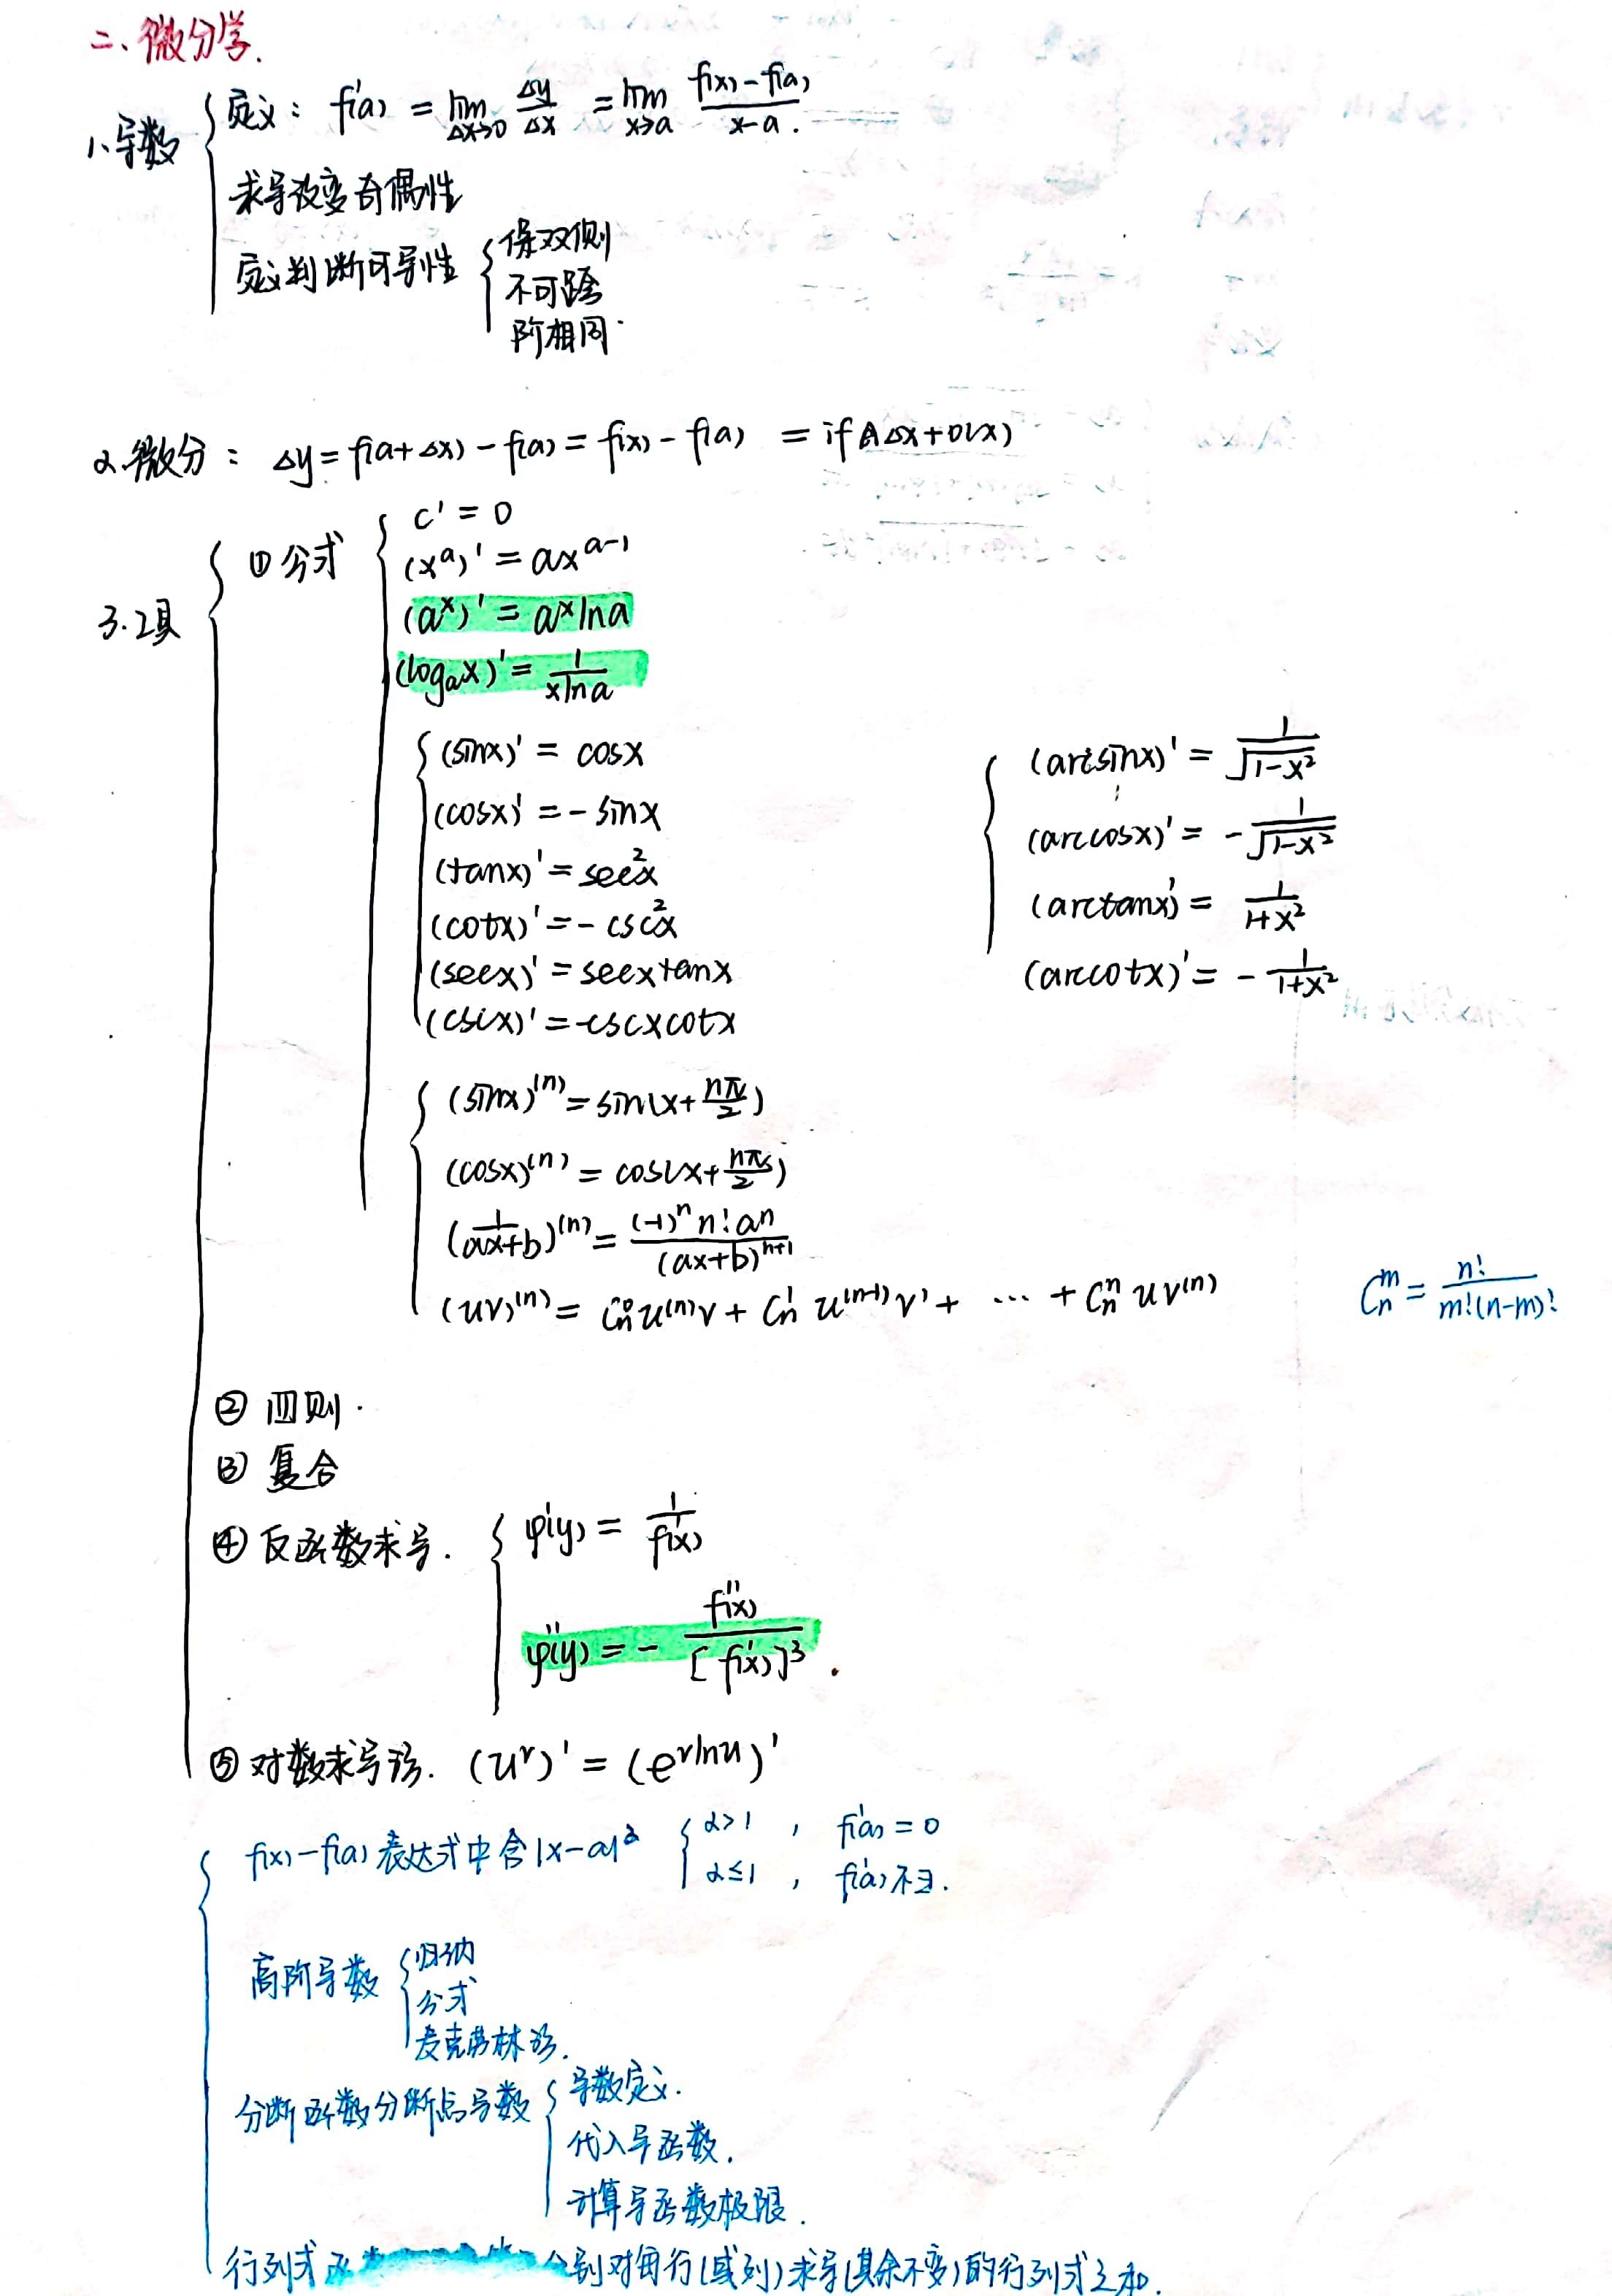 二、微分学.
1、导数
定义： f'(a) = lim_{Δx→0} Δy/Δx = lim_{x→a} (f(x)-f(a))/(x-a).
求导改变奇偶性
定义判断可导性
保双侧
不可跨
阶相同.
2.微分： Δy = f(a+Δx) - f(a) = f(x) - f(a) = if AΔx+o(x)
3.工具
① 公式
c' = 0
(x^a)' = ax^{a-1}
(a^x)' = a^x ln a
(log_a x)' = 1/(x ln a)
(sinx)' = cosx
(cosx)' = - sinx
(tanx)' = sec²x
(cotx)' = - csc²x
(secx)' = secxtanx
(cscx)' = -cscxcotx
(arcsinx)' = 1/√(1-x²)
(arccosx)' = - 1/√(1-x²)
(arctanx)' = 1/(1+x²)
(arccotx)' = - 1/(1+x²)
(sinx)^{(n)} = sin(x+nπ/2)
(cosx)^{(n)} = cos(x+nπ/2)
(1/(ax+b))^{(n)} = (-1)^n n! a^n/(ax+b)^{n+1}
(uv)^{(n)} = C_n^0 u^{(n)}v + C_n^1 u^{(n-1)}v' + ... + C_n^n uv^{(n)}
C_n^m = n!/(m!(n-m)!)
② 四则.
③ 复合
④ 反函数求导.
φ'(y) = 1/f'(x)
φ''(y) = - f''(x)/[f'(x)]³.
⑤ 对数求导法. (u^v)' = (e^{vlnu})'
f(x)-f(a)表达式中含|x-a|^α
α>1 , f'(a) = 0
α≤1 , f'(a)不∃.
高阶导数
归纳
公式
麦克劳林法.
分断函数分断点导数
导数定义.
代入导函数.
计算导函数极限.
行列式 别对每行(或列)求导(其余不变)的行列式之和.